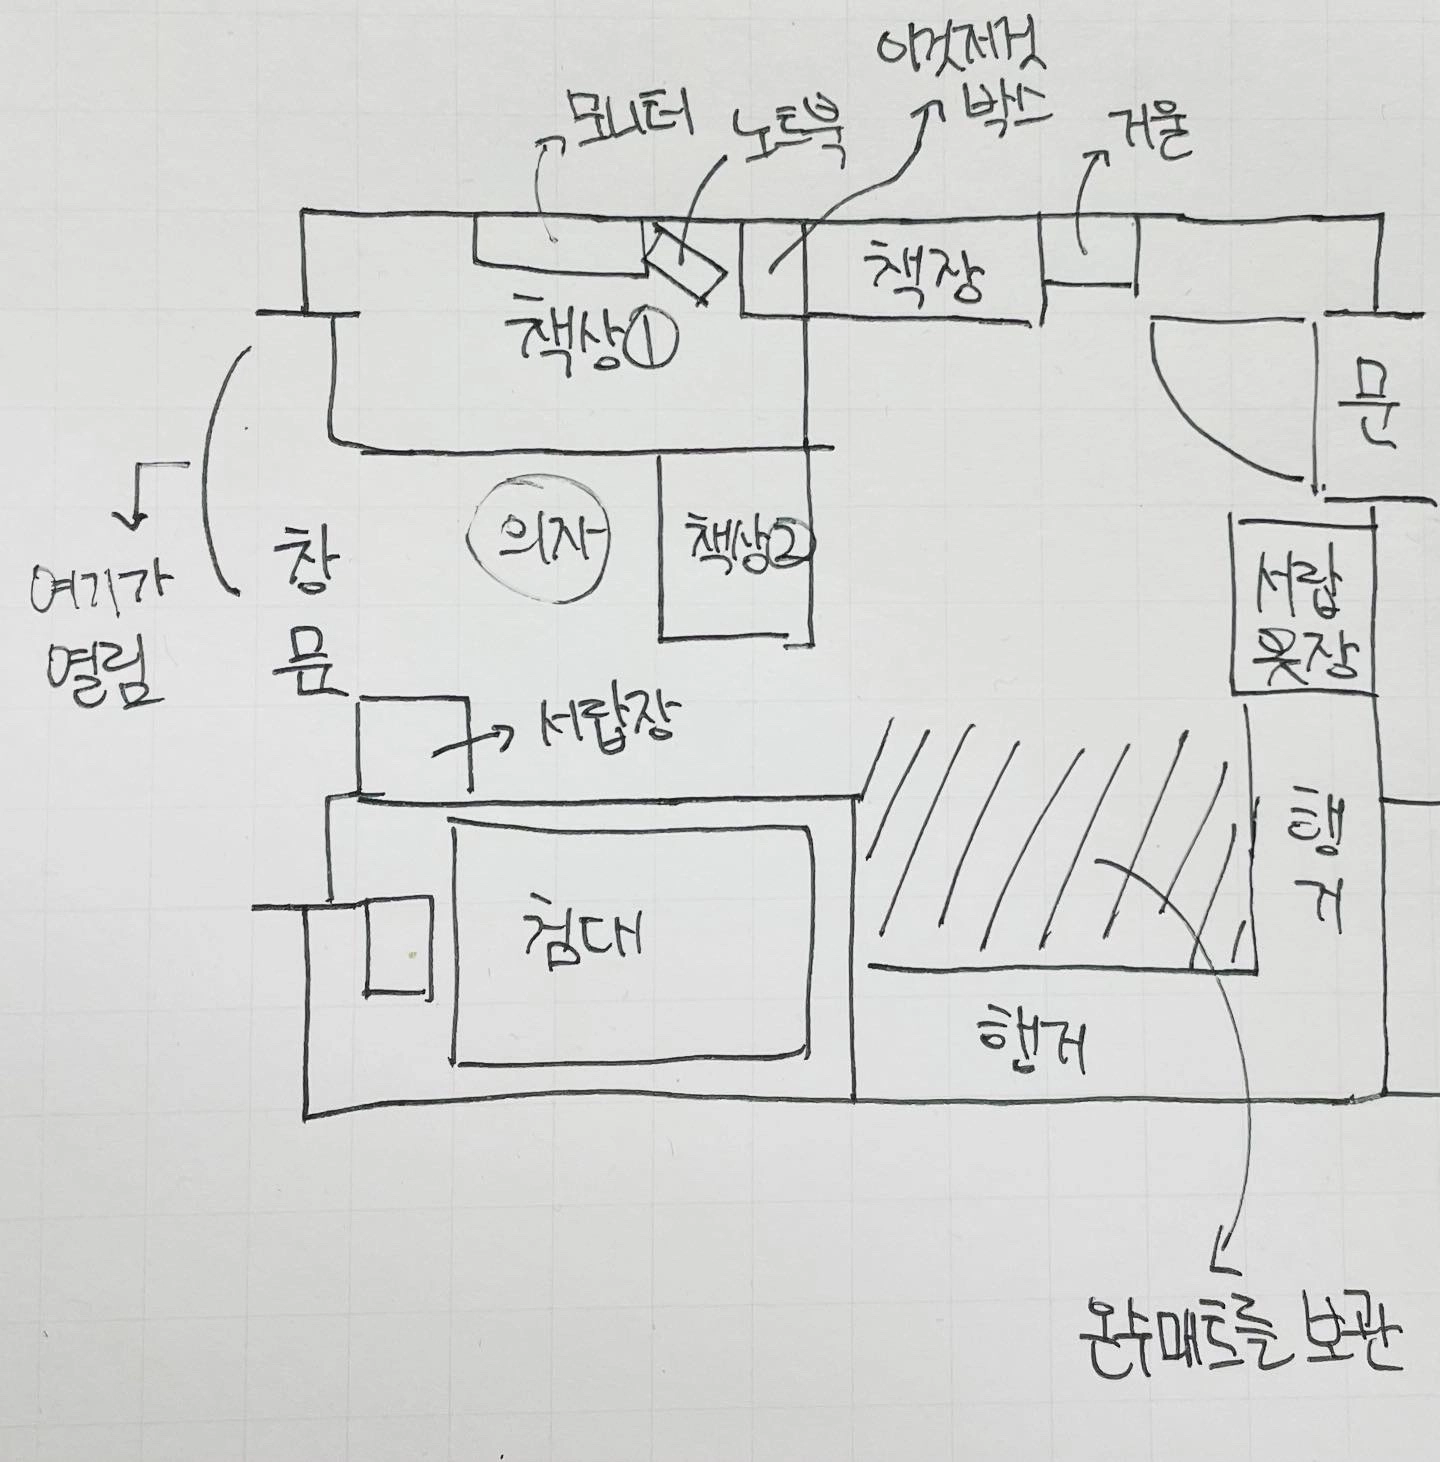 이것저것
박스
모니터
노트북
거울
책장
책상①
문
의자
책상②
창
문
여기가
열림
서랍
옷장
서랍장
행
거
침대
행거
온수매트를 보관